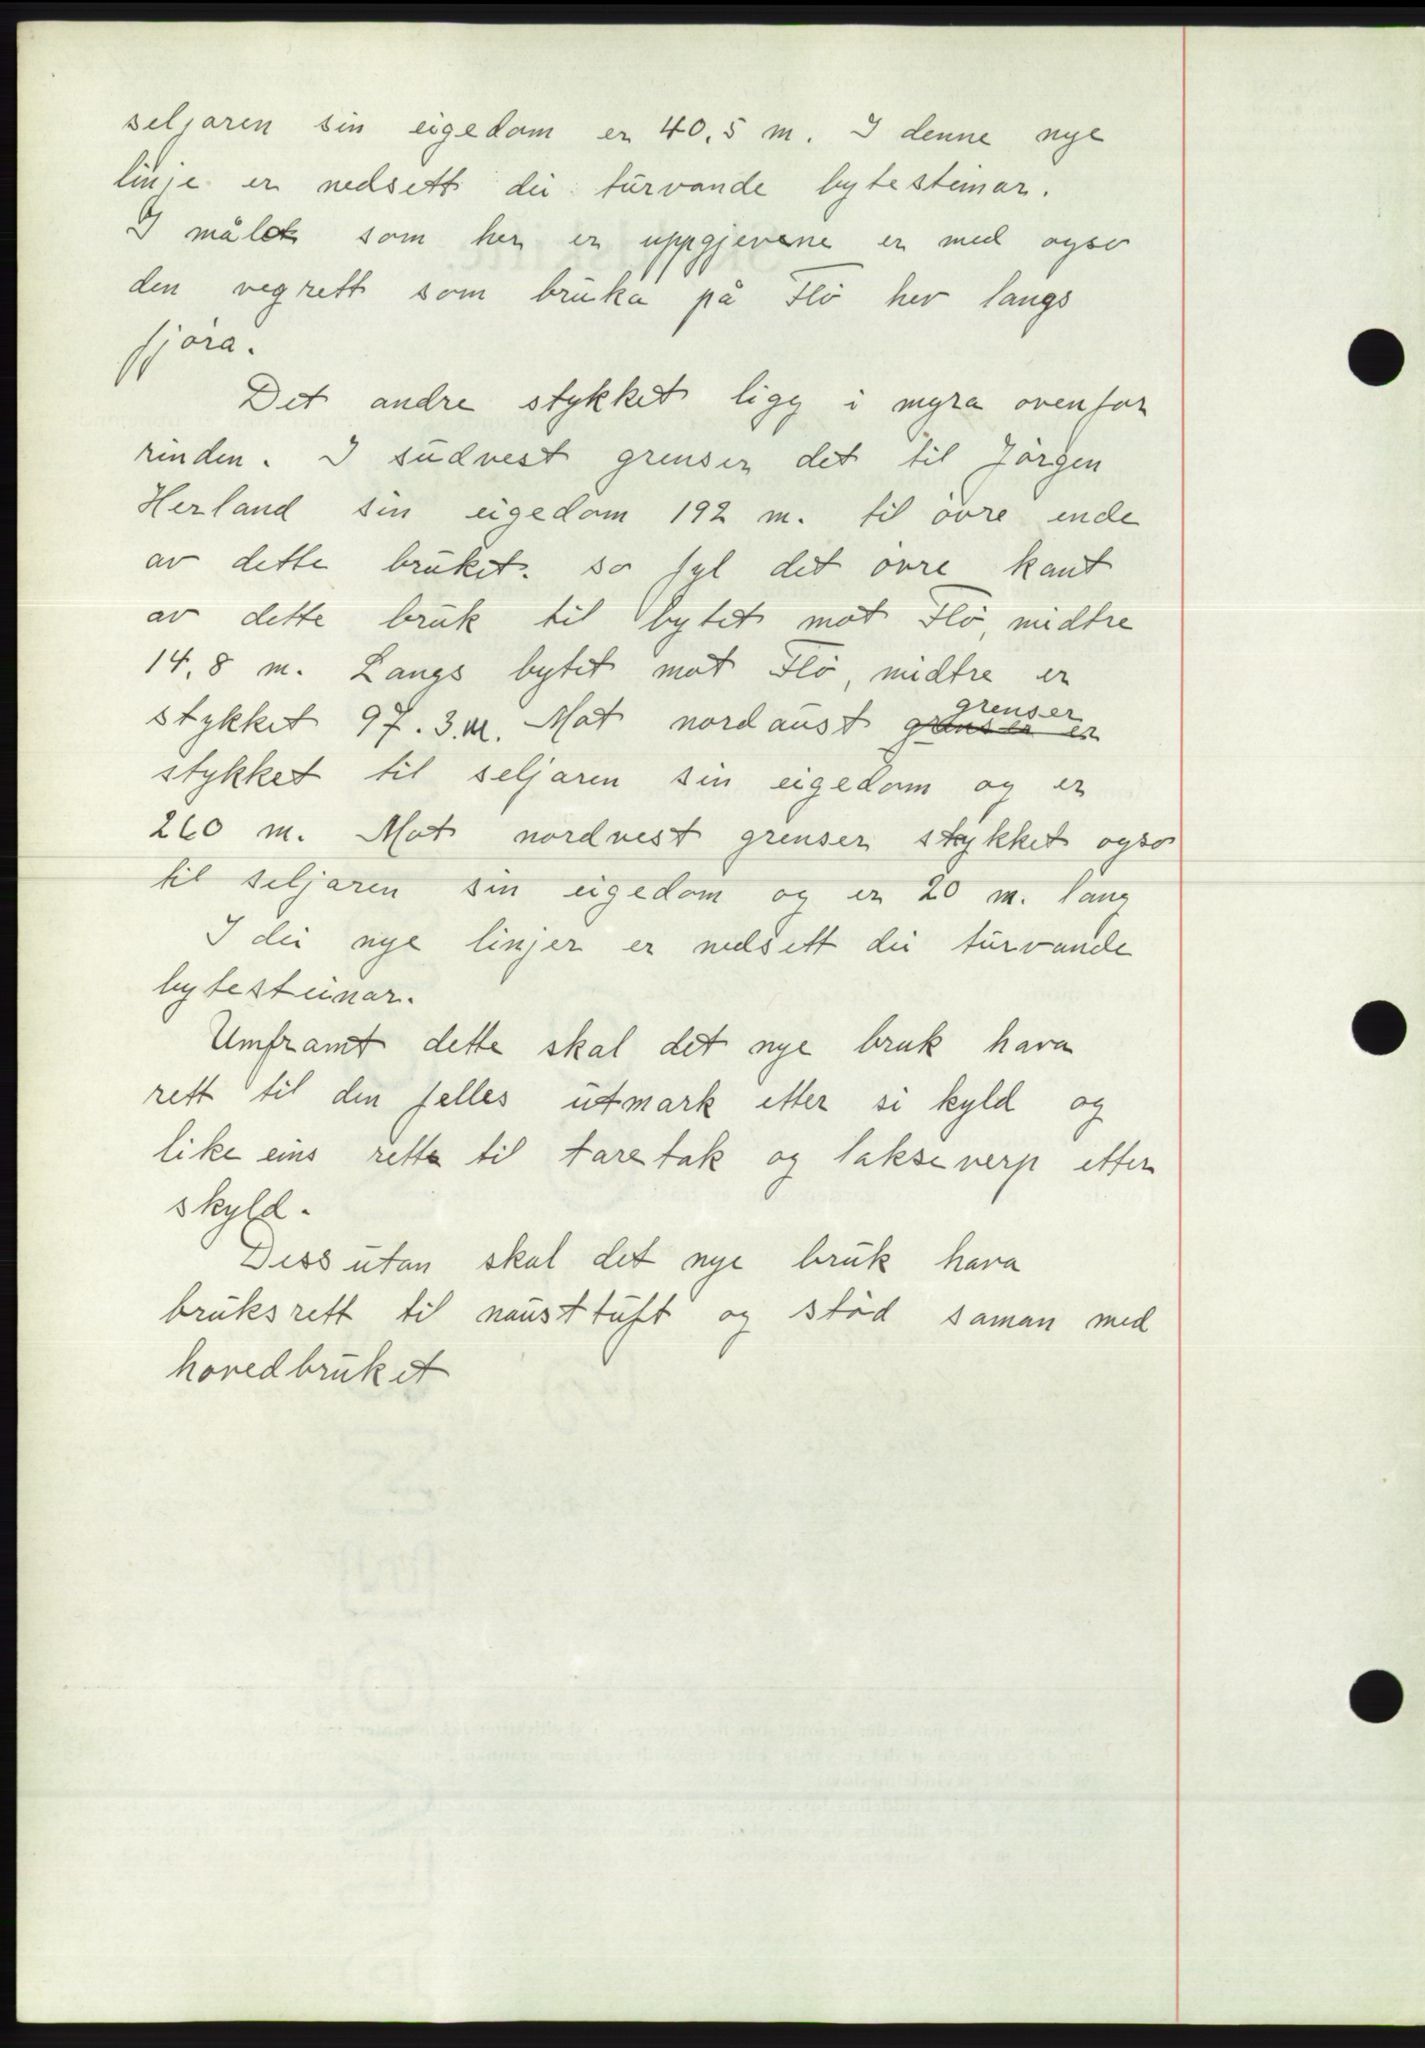 seljaren sin eigedom er 40,5 m. I denne nye
linje er nedsett dei turvande bytesteinar.
I målet som her er uppgjevene er med ogso
den vegrett som bruka på Flö hev langs
fjöra.
Det andre stykket ligg i myra ovenfor
rinden. I südvest grenser det til Jörgen
Herland sin eigedom 192 m. til övre ende
av dette brüket. so fyl det övre kant
av dette brük til bytet mot Flö, midtre
14,8 m. Langs bytet mot Flö, midtre er
stykket 97.3.m. Mot nordaust grenser er
grenser
stykket til seljaren sin eigedom og er
260 m. Mot nordvest grenser stykket ogso
til seljaren sin eigedom og er 20 m. lang
I dei nye linjer er nedsett dei turvande
bytesteinar.
Umframt dette skal det nye bruk hava
rett til den felles utmark etter si kyld og
like eins rett til taretak og lakseverp etter
skyld.
Dessutan skal det nye brük hava
brüksrett til nausttuft og stöd saman med
hovedbrüket